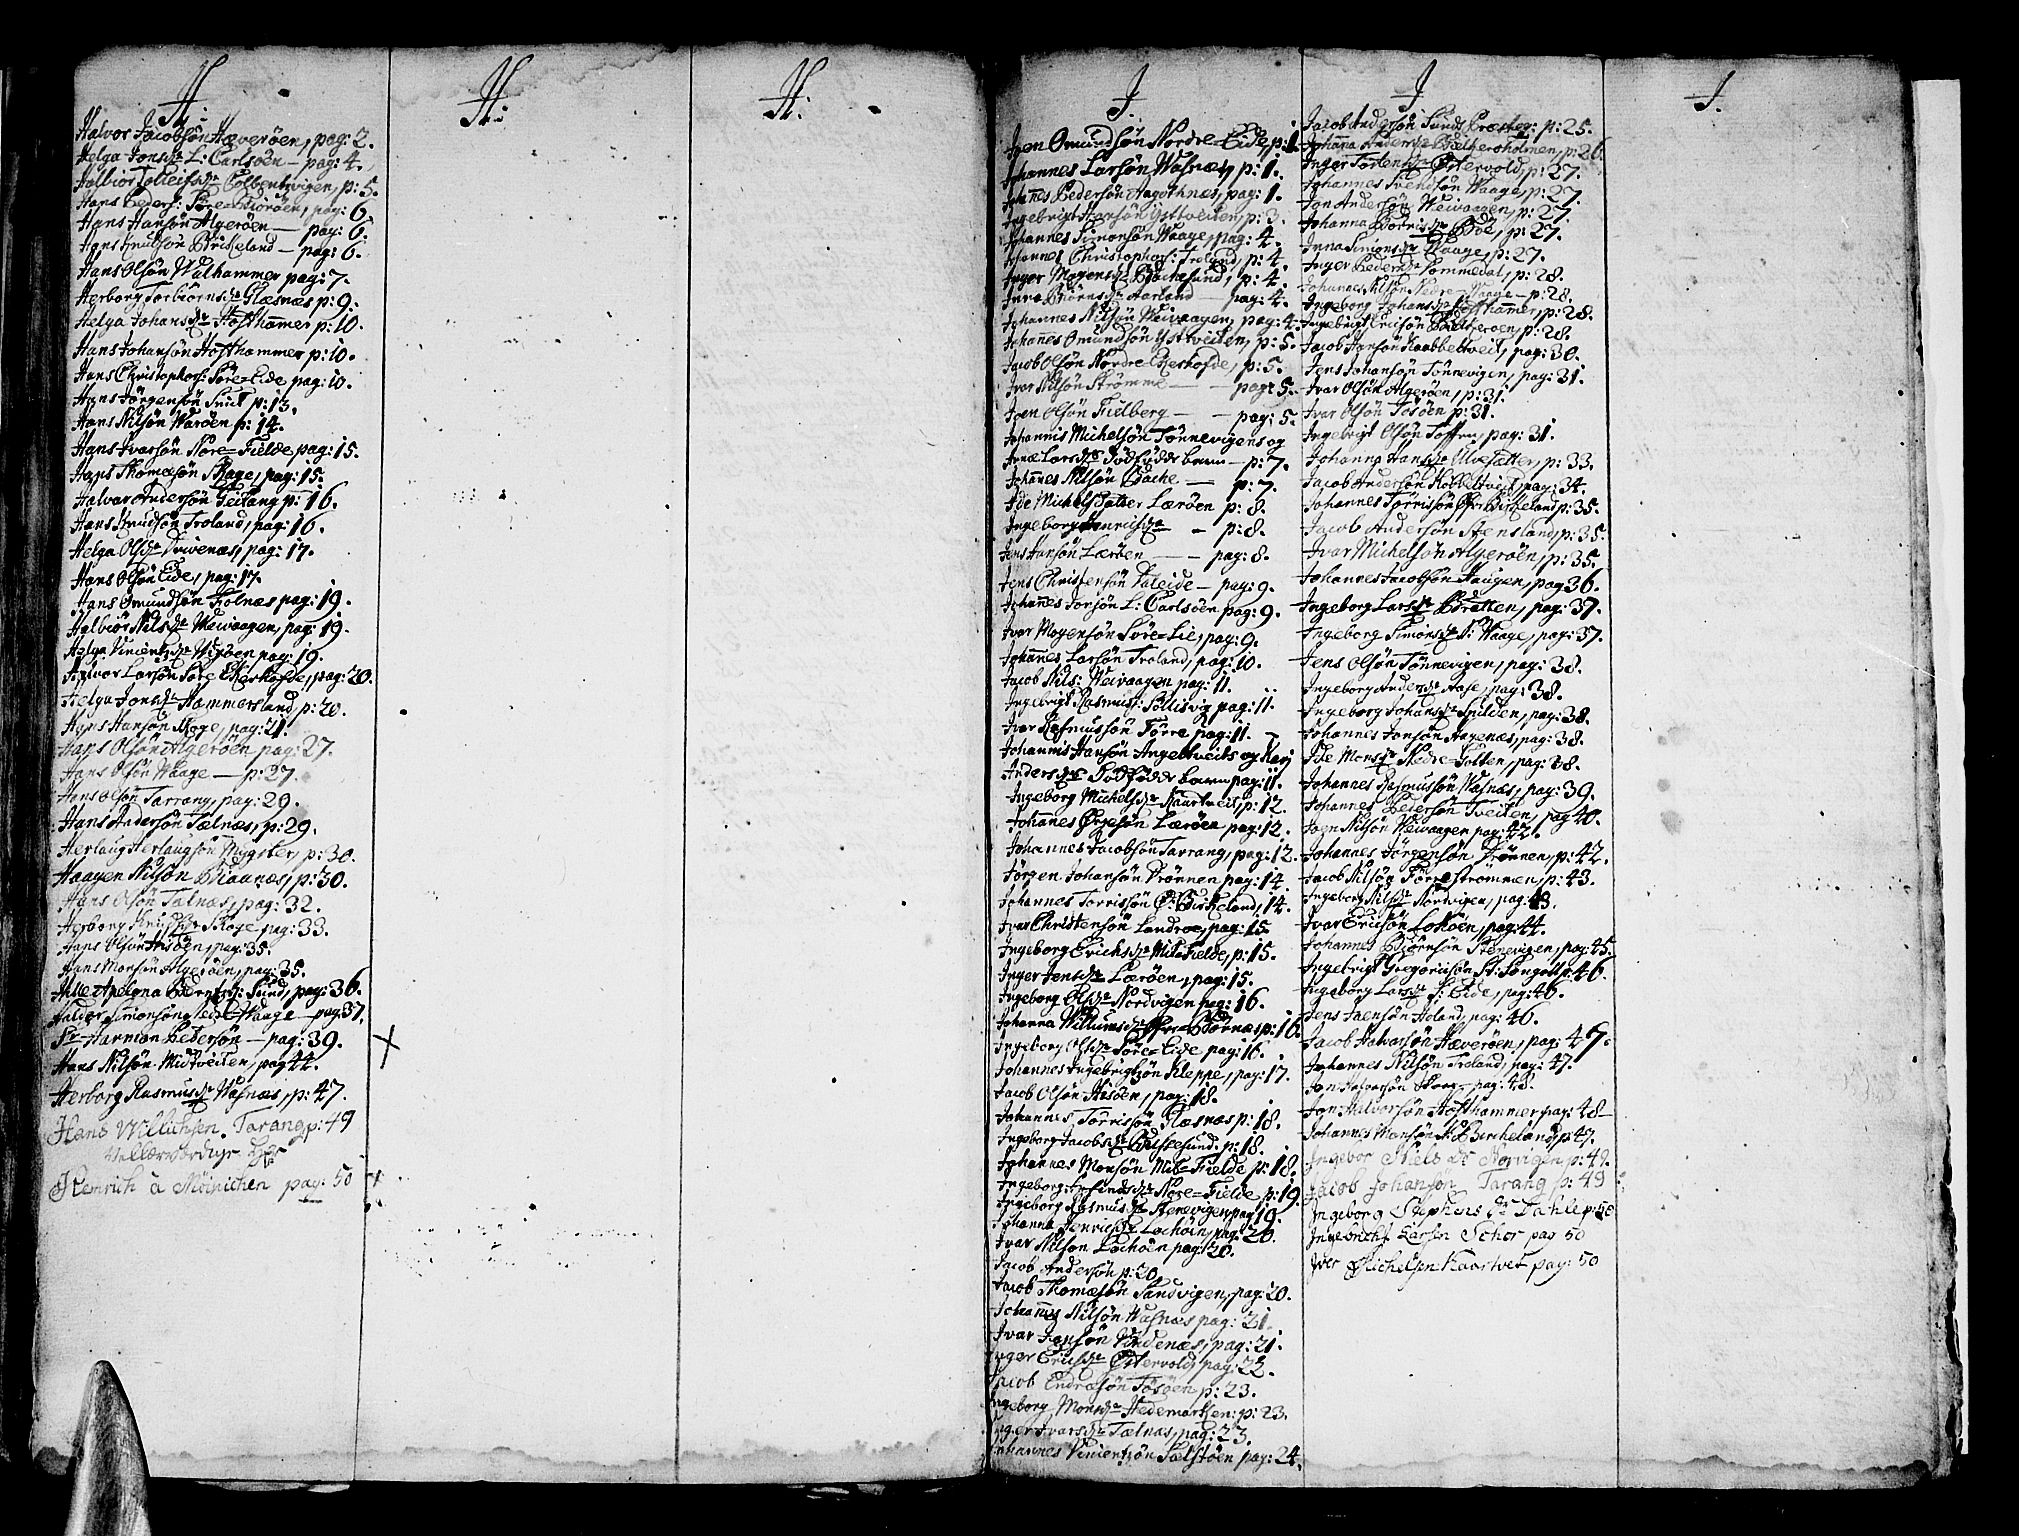 H:
Halvor Jacobsön Hæveröen, pag: 2.
Helga Jonsdr L: Carlsöen — pag: 4.
Halbior Tolleifsdr Golbentzvigen, p: 5.
Hans Peders: Söre=Biöröen, pag: 6.
Hans Hansön Algeröen — pag: 6.
Hans Knudsön Birkeland — pag: 6.
Hans Olsön Walhammer pag: 7.
Herborg Torbiörnsdr Glæsnæs p: 9.
Helga Johansdr Hofthammer p: 10.
Hans Johansön Hofthammer p: 10.
Hans Christophers: Söre=Eide pag: 10.
Hans Jörgensön p: 13.
Hans Nilsön Waröen p: 14.
Hans Ivarsön Nore=Fielde pag: 15.
Hans Thomæsön Skage, pag: 15.
Halvar Andersön Geitang p: 16.
Hans Knudsön Troland, pag: 16.
Helga Olsdr Drivenæs, pag: 17.
Hans Olsön Eide, pag: 17.
Hans Omundsön Tolnæs pag: 19.
Halbior Nilsdr Weivaagen, pag: 19.
Helga Vincentzdr Wiröen pag: 19.
Halvor Larsön Söre Ekerhofde, pag: 20.
Helga Jonsdr Hammersland, p: 20.
Hans Hansön Skoge, pag: 21.
Hans Olsön Algeröen pag: 27.
Hans Olsön Waage — p: 27.
Hans Olsön Tarrang, pag: 29.
Hans Andersön Tælnæs, p: 29.
Herlaug Herlaugsön Mygster, p: 30.
Haagen Nilsön Biaanæs, p: 30.
Hans Olsön Tælnæs, pag: 32.
Herborg Knudsdr Skoge pag: 33.
Hans Olsön pag: 35.
Hans Monsön Algeröen, pag: 35.
Apelona Berntsdr: Sund, pag: 36.
Halder Simonsön Waage — pag: 37.
Sr Harman Pedersön — pag: 39. X
Hans Nilsön Midtveiten, pag 44.
Herborg Rasmusdr Wasnæs, p: 47.
Hans Willichsen. Tarang p: 49
Velærværdige Hr
Henrich a Möinichen pag: 50 +
H:
H:
J.
Joen Omundsön Nordre=Eide, p: 1.
Johannes Larsön Wasnæs, p: 1.
Johañes Pedersön Hagothnæs, pag: 1.
Ingebrigt Hansön Ystveiten, p: 3.
Johannes Simonsön Waage, pag: 4.
Johannes Christophers: Troland, p: 4.
Inger Mogensdr Backesund, p: 4.
Inna Biörnsdr Harland — pag: 4.
Johannes Nilsön Weivaagen, pag: 4.
Johañes Omundsön Ystveiten, p: 5.
Jacob Olsön Nordre Ekerhofde, p: 5.
Ivar Nilsön Strömme — — pag: 5.
Joen Olsön Fielberg — — pag: 5.
Johannis Michelsön Tönnevigens og
Larsdrs Dödfödde barn — p: 7.
Johañes Nilsön Backe — p: 7.
Ide Michelsdatter Læröen p: 8.
Ingeborg Henrichsdr — p: 8.
Jens Hansön Læröen — — pag: 8.
Jens Christensön Faleide — pag: 9.
Johañes Jonsön L: Carlsöen pag: 9.
Ivar Mogensön Söre=Lie, pag: 9.
Johañes Larsön Troland, pag: 10.
Jacob Nils: Weivaagen pag: 11.
Ingebrigt Rasmus: Follisvig pag: 11.
Ivar Rasmussön Förre pag: 11.
Johannis Hansön Angeltveits og Kari
Andersdrs Dödfödde barn pag: 11.
Ingeborg Michelsdr Kaartveit, p: 12.
Johañes Örjesön Læröen pag: 12.
Johannes Jacobsön Tarrang, pag: 12.
Jörgen Johansön Drönnen pag: 14.
Johannes Torrissön Ö: Birkeland, 14.
Ivar Christensön Landroe, pag: 15.
Ingeborg Erichsdr Mit=Fielde, p: 15.
Inger Jensdr Læröen, pag: 15.
Ingeborg Olsdr Nordvigen pag: 16.
Johanna Willumsdr Öfre=Börnæs p: 16.
Ingeborg Olsdr Söre=Eide pag: 16.
Johannes Ingebrigtzön Kleppe, pag: 17.
Jacob Olsön pag: 18.
Johannes Torrissön Næsnæs p: 18.
Ingeborg Jacobsdr p: 18.
Johannes Monsön Mit=Fielde p: 18.
Ingeborg Nore=Fielde p: 19.
Ingeborg Rasmusdr Stenevigen pag 19.
Johanna Henrichsdr Lochöin, pag: 20.
Ivar Nilsön Lochöen pag: 20.
Jacob Andersön p: 20.
Jacob Thomæsön Sandvigen, pag: 20.
Johannes Nilsön Wasnæs pag: 21.
Ivar Hansön Vindenæs, pag: 21.
Inger Erichsdr Östervold, pag: 22.
Jacob Endresön Tösöen p: 23.
Ingeborg Monsdr Hedemarken: p: 23.
Inger Ivarsdr Tælnæs, pag: 23.
Johannes Vincentzön Sælstöen pag: 24.
J.
Jacob Andersön Sunds Præsteg: p: 25.
Johanna Andersdr Bielkersholmen, p: 26.
Inger Torlensdr Östervold, p: 27.
Johannes Svendsön Waage, p: 27.
Jon Andersön Weivaagen, p: 27.
Johanna Börrisdr Böe, p: 27.
Inna Simonsdr Waage, p: 27.
Inger Pedersdr Sommedal, p: 28.
Johannes Nilsön Nedre=Waage — p: 28.
Ingeborg Johansdr Hofthammer, p: 28.
Ingebrigt Ericsön Bielkeröen, p: 28.
Jacob Hansön Kaabbeltveit, pag: 30.
Jens Johansön Tönnevigen, pag: 31.
Ivar Olsön Algeröen, p: 31.
Ivar Olsön Tösöen p: 31.
Ingebrigt Olsön Toften, pag: 31.
Johanna Hansdr Ulvesætter, p: 33.
Jacob Andersön Kobbeltveit, pag: 34.
Johannes Torrissön Öfre Birkeland p: 35.
Jacob Andersön Stensland, p: 35.
Ivar Michelsön Algeröen, p: 35.
Johannes Jacobsön Haugen, pag 36.
Ingeborg Larsdr Bratten, pag: 37.
Ingeborg Simonsdr N: Waage, pag: 37.
Jens Olsön Tönnevigen, pag: 38.
Ingeborg Andersdr Aase, pag: 38.
Ingeborg Johansdr Spilden, pag: 38.
Johannes Jonsön Hagenæs, pag: 38.
Ide Monsdr Nedre=Tolten, pag: 38.
Johannes Rasmussön Wasnæs, pag: 39.
Johannes Pedersön Tveiten, pag 40.
Joen Nilsön Weivaagen pag: 42.
Johannes Jörgensön Drönnen, p: 42.
Jacob Nilsön Förrestrømmen, p: 43.
Ingeborg Nilsdr Nordvigen, pag: 43.
Ivar Ericsön Loköen, pag: 44.
Johannes Biörnsön Stenevigen, pag: 45.
Ingebrigt Gregoriisön St: Songolt p: 46.
Ingeborg Larsdr S: Eide, pag: 46.
Jens Jaensön Holand, pag: 46.
Jacob Halvorsön Hæveröen, pag: 47.
Johannes Nilsön Troland, pag: 47.
Jon Halvorsön Skoge — pag: 48.
Jon Halvorsön Hofthammer pag: 48
Johannes Monsön N: Birkeland, p: 47.
Ingebor Niels Dr Norvigen p: 49.
Jacob Johansön Tarang p: 49
Ingeborg Stephens Dr Dahle p: 50
Ingebricht Larsen Schor pag 50
Iver Michelsen Kaartvet pag: 50
J.